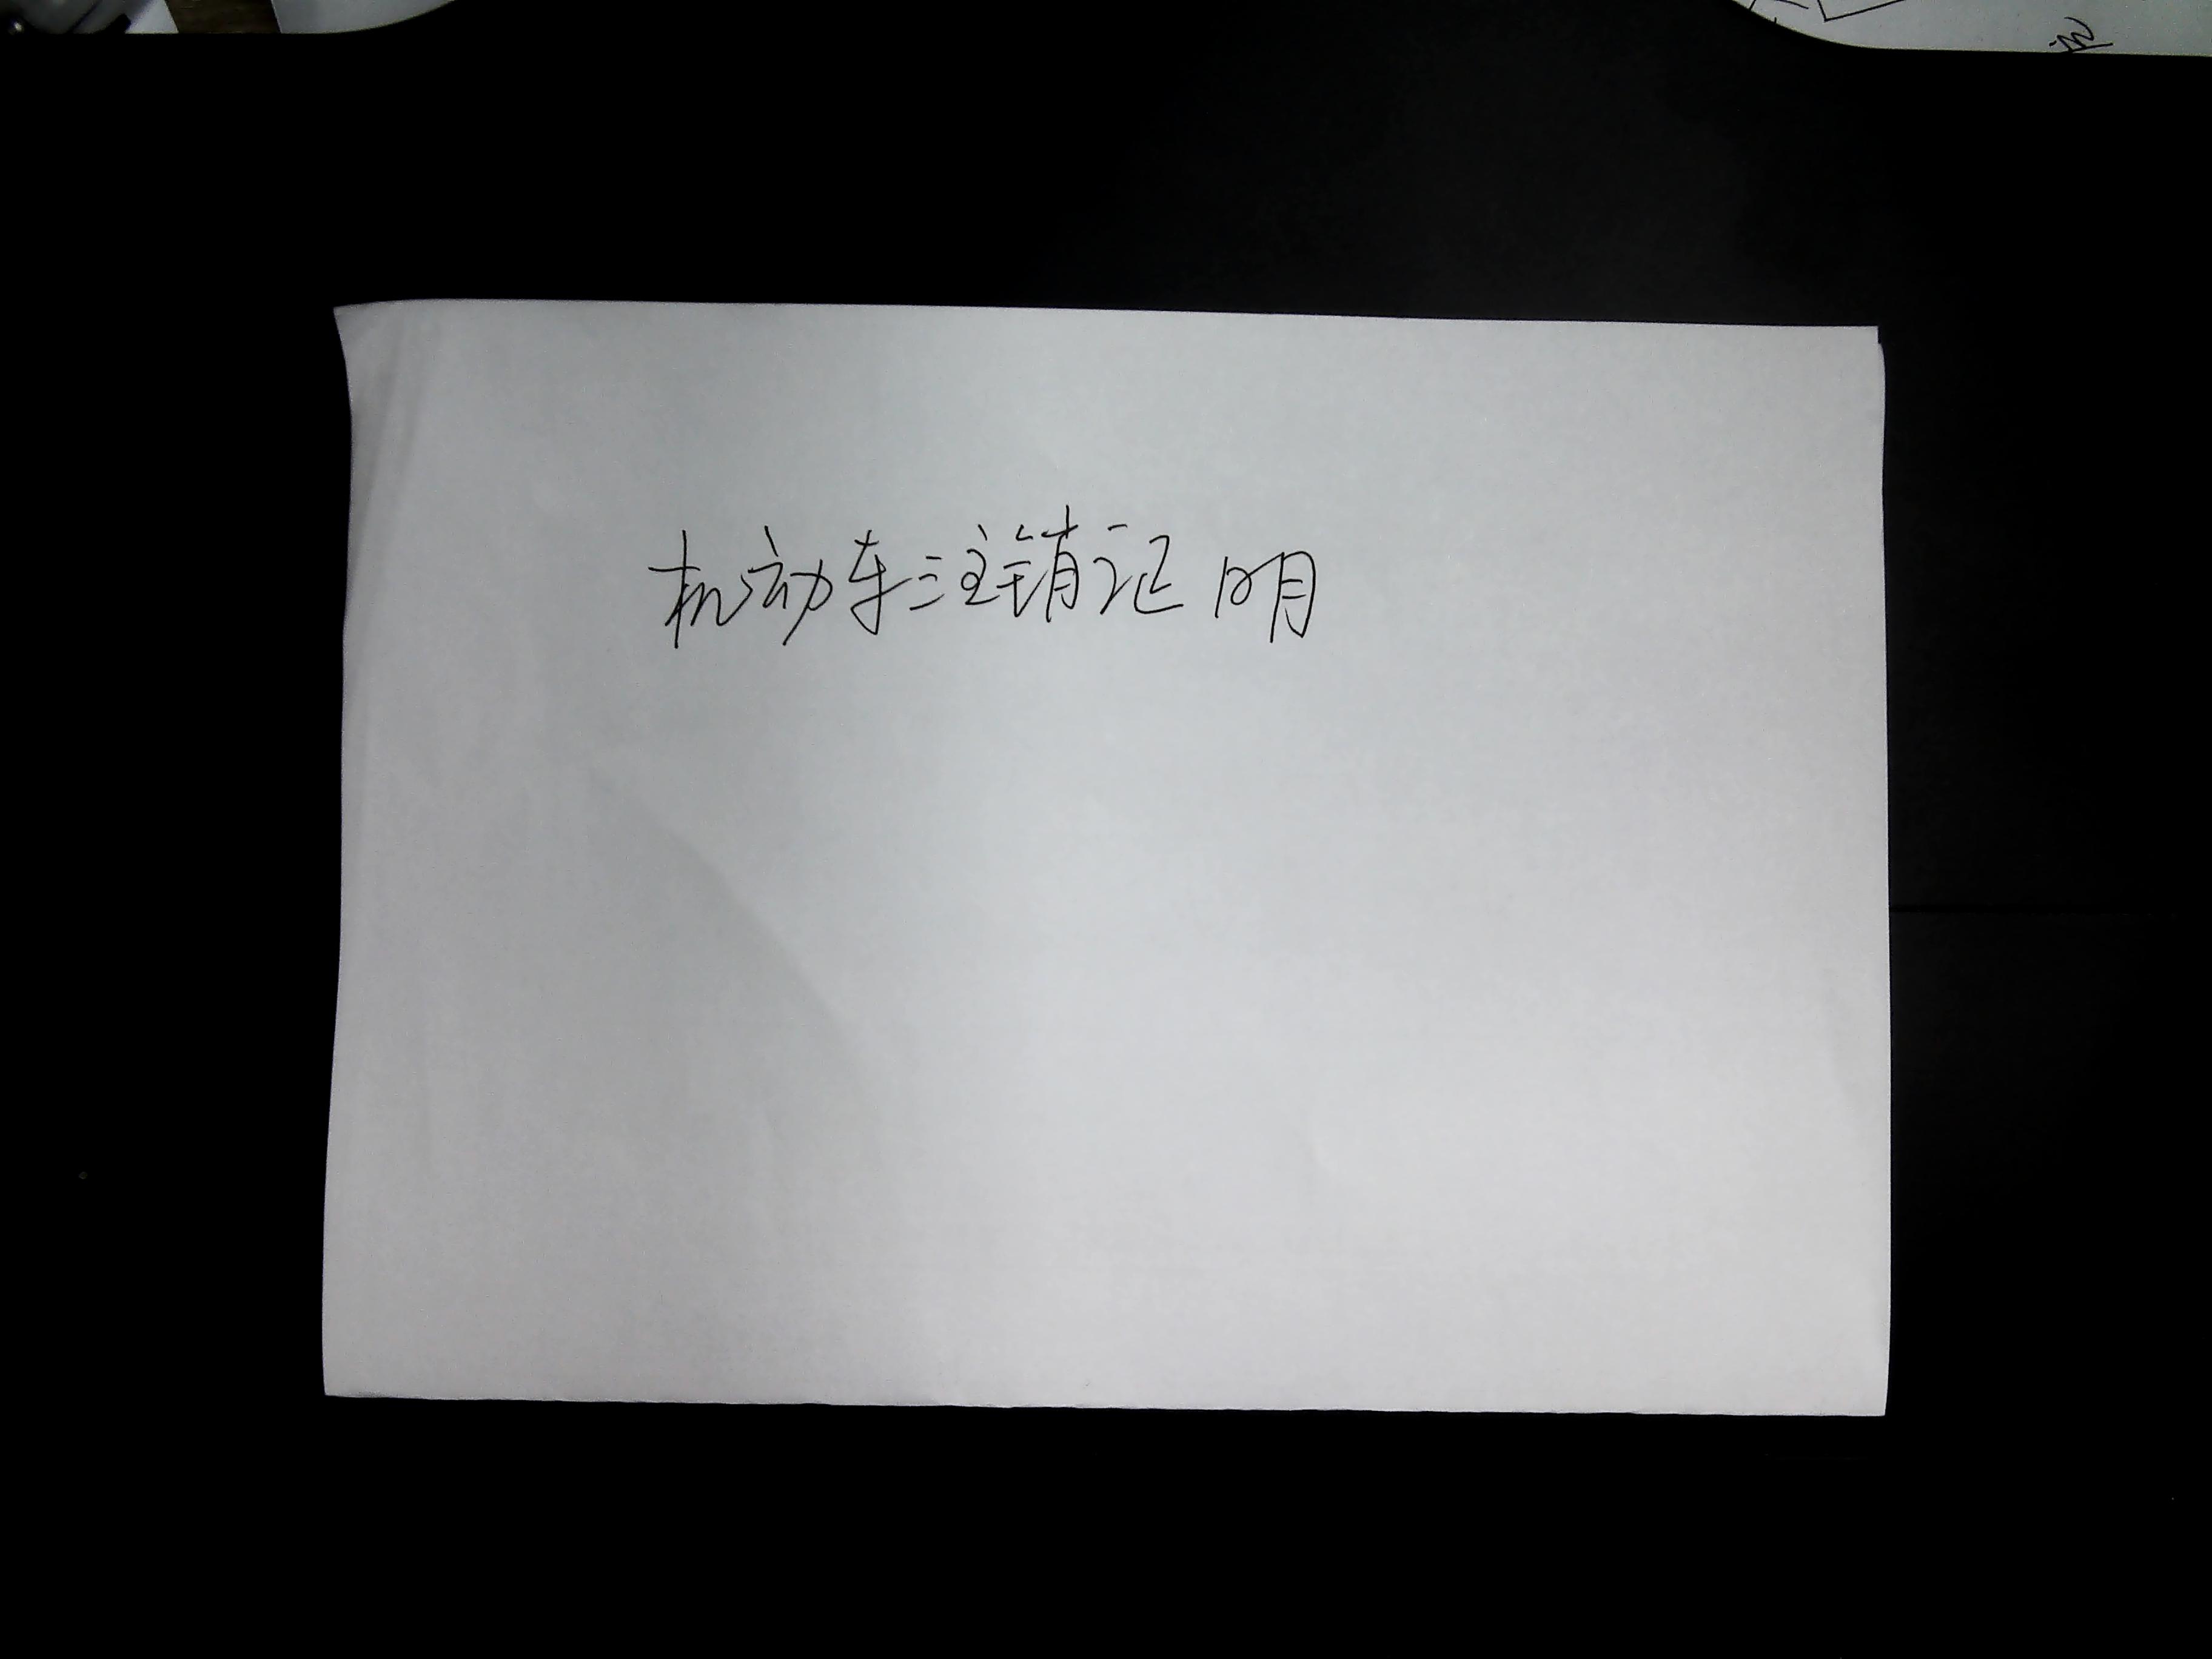 机动车注销证明